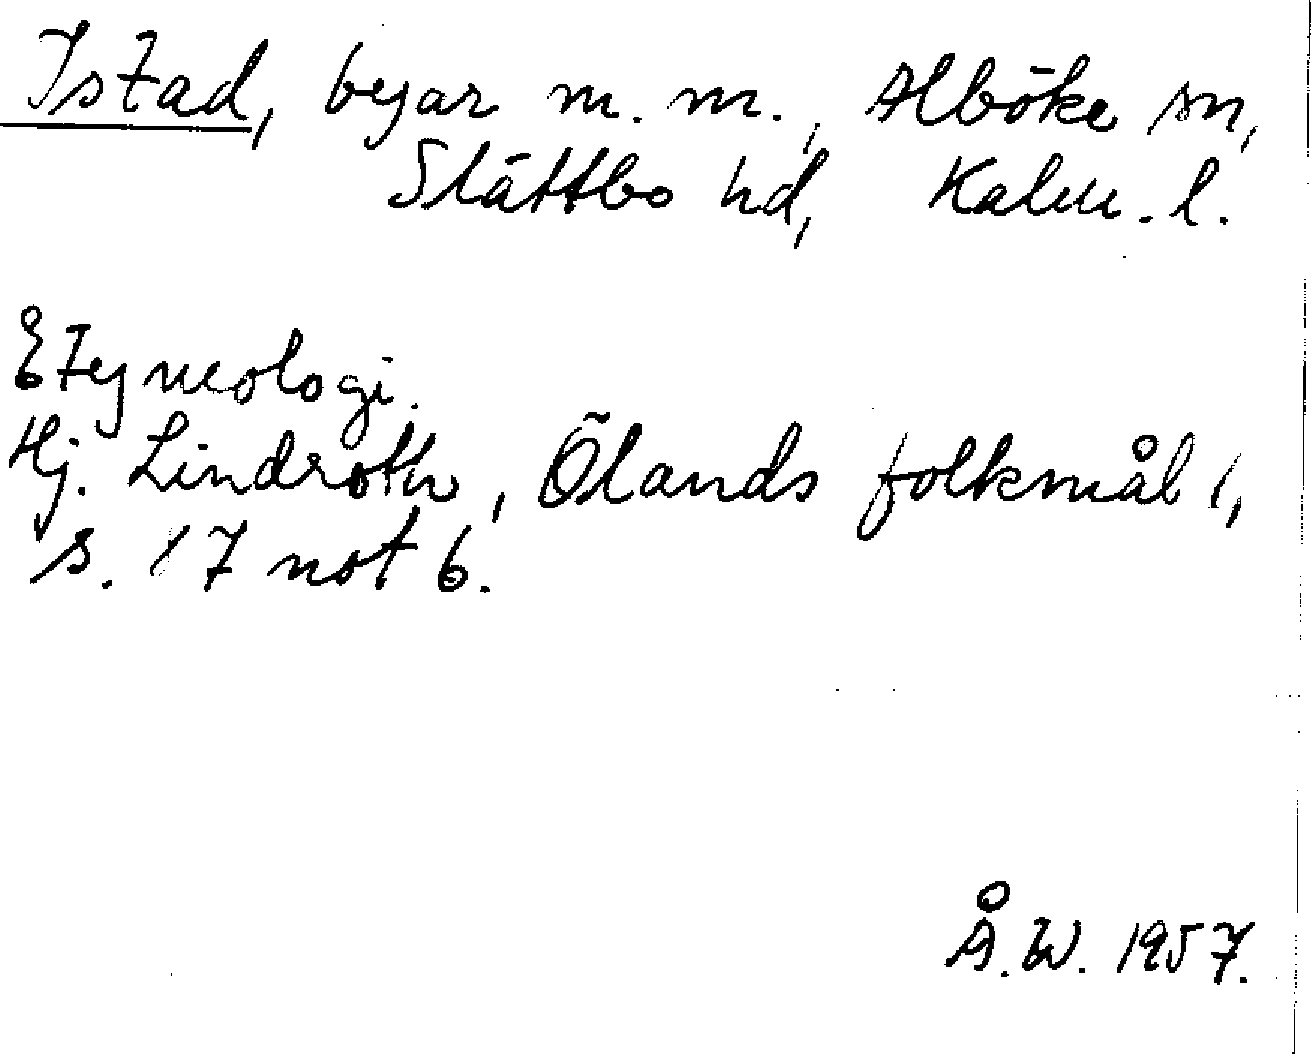 Istad, byar m. m., Alböke sn,
Slättbo hd, Kalm. l.
Etymologi.
Hj. Lindroth, Ölands folkmål 1,
s. 17 not 6.
Å. W. 1957.